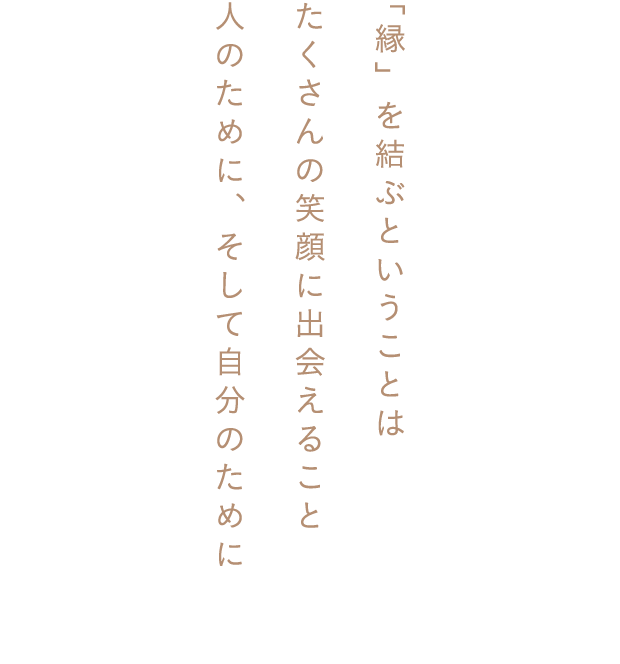 「縁」を結ぶということは
たくさんの笑顔に出会えること
人のために、そして自分のために